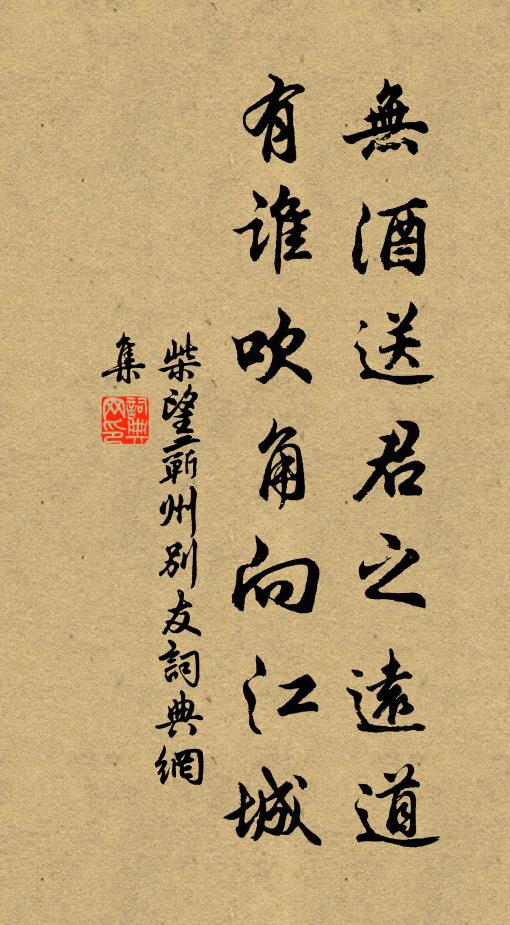 無酒送君之遠道
有誰吹角向江城
柴望蘄州別友詞典網
集
詞典
网印